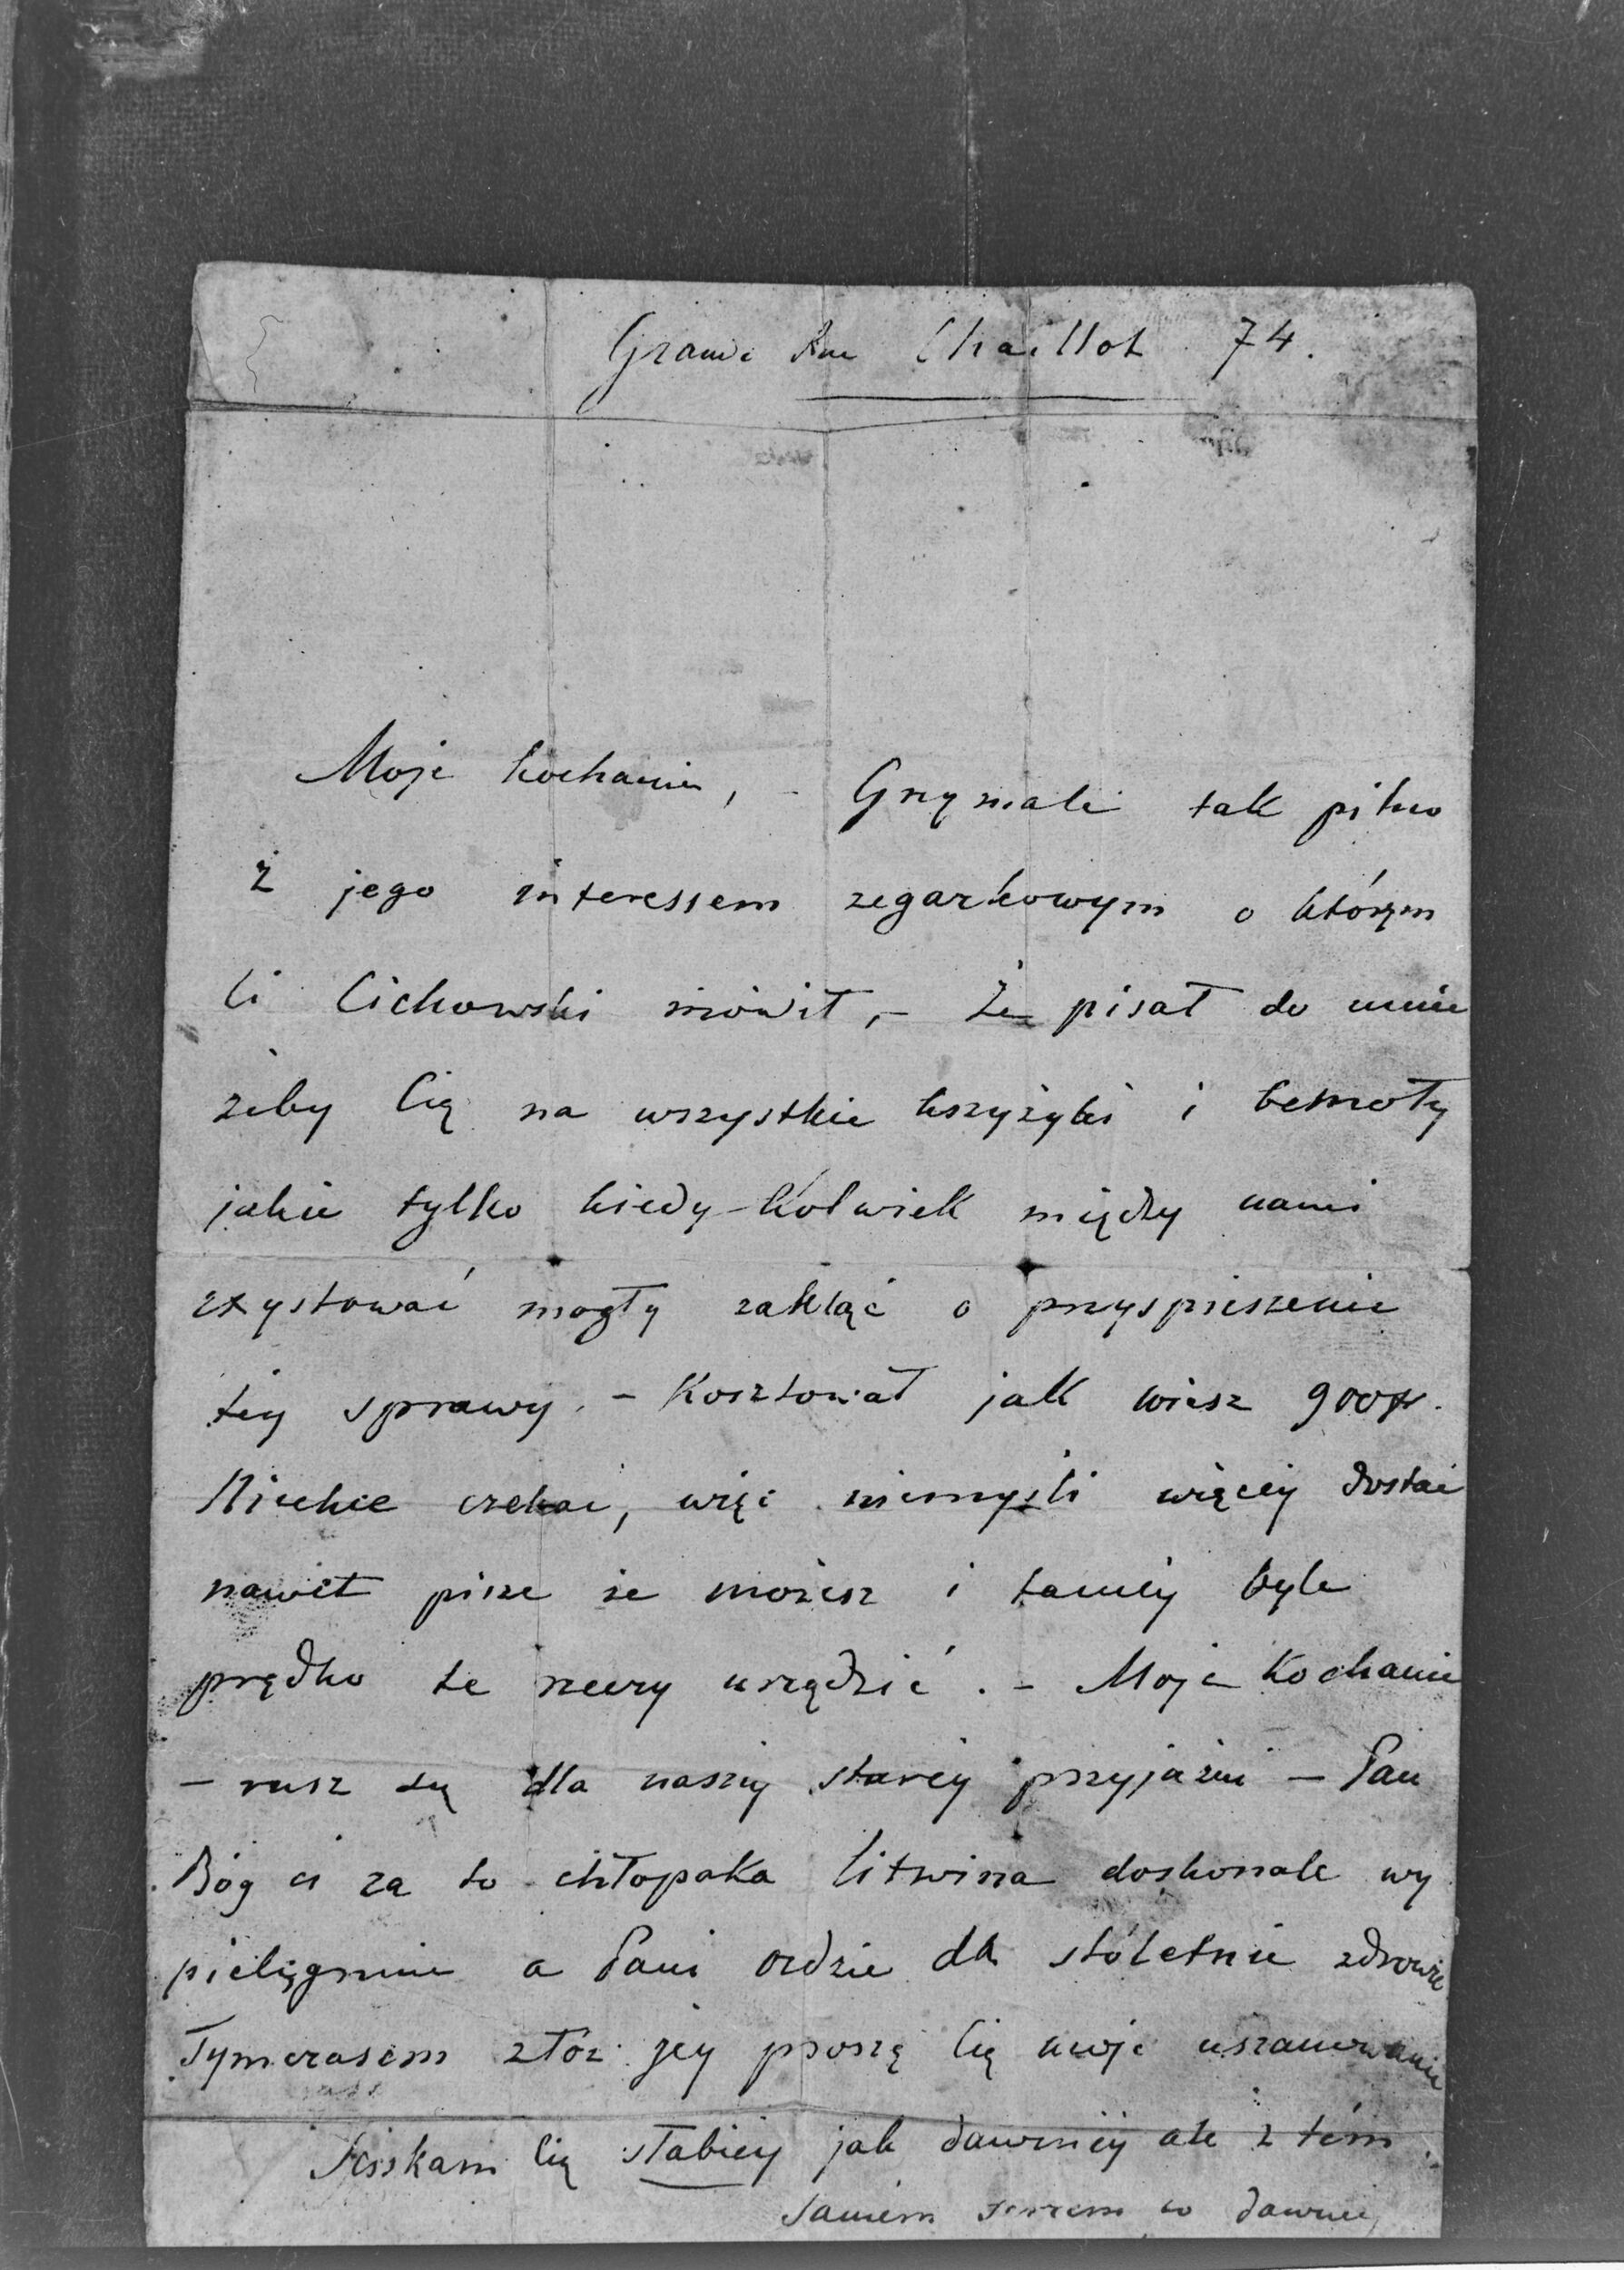 Grande Rue Chaillot 74.
Moje kochanie, - Grzymale tak pilno
z jego interessem zegarkowym o którym
Ci Cichowski mówił, - że pisał do mnie
żeby Cię na wszystkie krzyżyki i bemoty
jakie tylko kiedy-kolwiek między nami
exystować mogły zakląć o przyspieszenie
téy sprawy. - Kosztował jak wiesz 900fr.
Niechce czekać, więc niemyśli więcéy dostać
nawet pisze że możesz i taniéy byle
prędko te rzeczy urządzić. - Moje Kochanie
- rusz się dla naszéy staréy przyjaźni - Pan
Bóg ci za to chłopaka litwina doskonale wy
pielęgnuie a Pani Ordzie da stóletnie zdrowie
Tymczasem złóż jéy proszę Cię moje uszanowanie
Sciskam Cię słabiéy jak dawniéy ale z tém
samém sercem co dawniéy